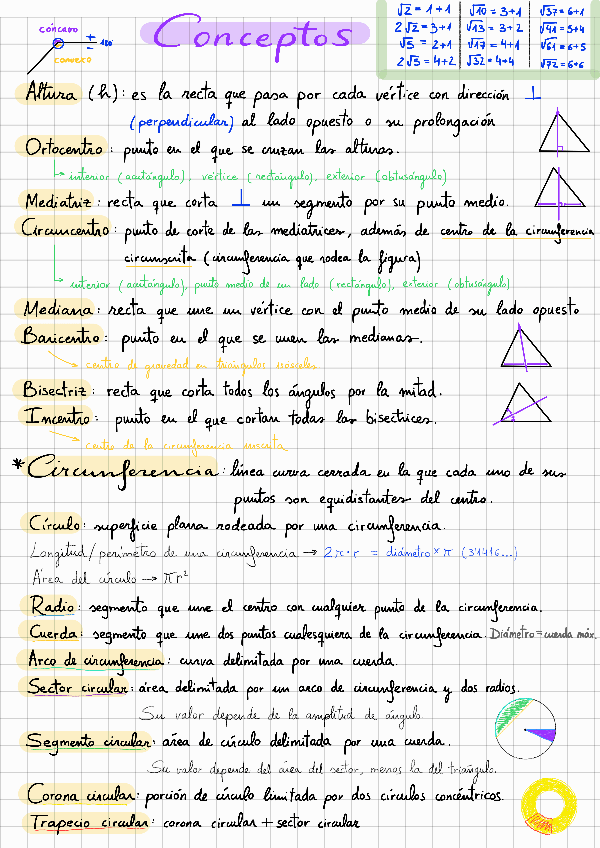 cóncavo
180º
convexo
Conceptos
√2 = 1+1
2√2 = 3+1
√5 = 2+1
2√5 = 4+2
√10 = 3+1
√13 = 3+2
√17 = 4+1
√32 = 4+4
√37 = 6+1
√41 = 5+4
√61 = 6+5
√72 = 6+6
Altura (h): es la recta que pasa por cada vértice con dirección ⊥
(perpendicular) al lado opuesto o su prolongación
Ortocentro: punto en el que se cruzan las alturas.
interior (acutángulo), vértice (rectángulo), exterior (obtusángulo)
Mediatriz: recta que corta ⊥ un segmento por su punto medio.
Circuncentro: punto de corte de las mediatrices, además de centro de la circunferencia
circunscrita (circunferencia que rodea la figura)
interior (acutángulo), punto medio de un lado (rectángulo), exterior (obtusángulo)
Mediana: recta que une un vértice con el punto medio de su lado opuesto
Baricentro: punto en el que se unen las medianas.
centro de gravedad en triángulos isósceles
Bisectriz: recta que corta todos los ángulos por la mitad.
Incentro: punto en el que cortan todas las bisectrices.
centro de la circunferencia inscrita
*Circunferencia: línea curva cerrada en la que cada uno de sus
puntos son equidistantes del centro.
Círculo: superficie plana rodeada por una circunferencia.
Longitud/perímetro de una circunferencia → 2π·r = diámetro × π (3'1416...)
Área del círculo → πr²
Radio: segmento que une el centro con cualquier punto de la circunferencia.
Cuerda: segmento que une dos puntos cualesquiera de la circunferencia. Diámetro = cuerda máx.
Arco de circunferencia: curva delimitada por una cuerda.
Sector circular: área delimitada por un arco de circunferencia y dos radios.
Su valor depende de la amplitud de ángulo
Segmento circular: área de círculo delimitada por una cuerda.
Su valor depende del área del sector, menos la del triángulo.
Corona circular: porción de círculo limitada por dos círculos concéntricos.
Trapecio circular: corona circular + sector circular